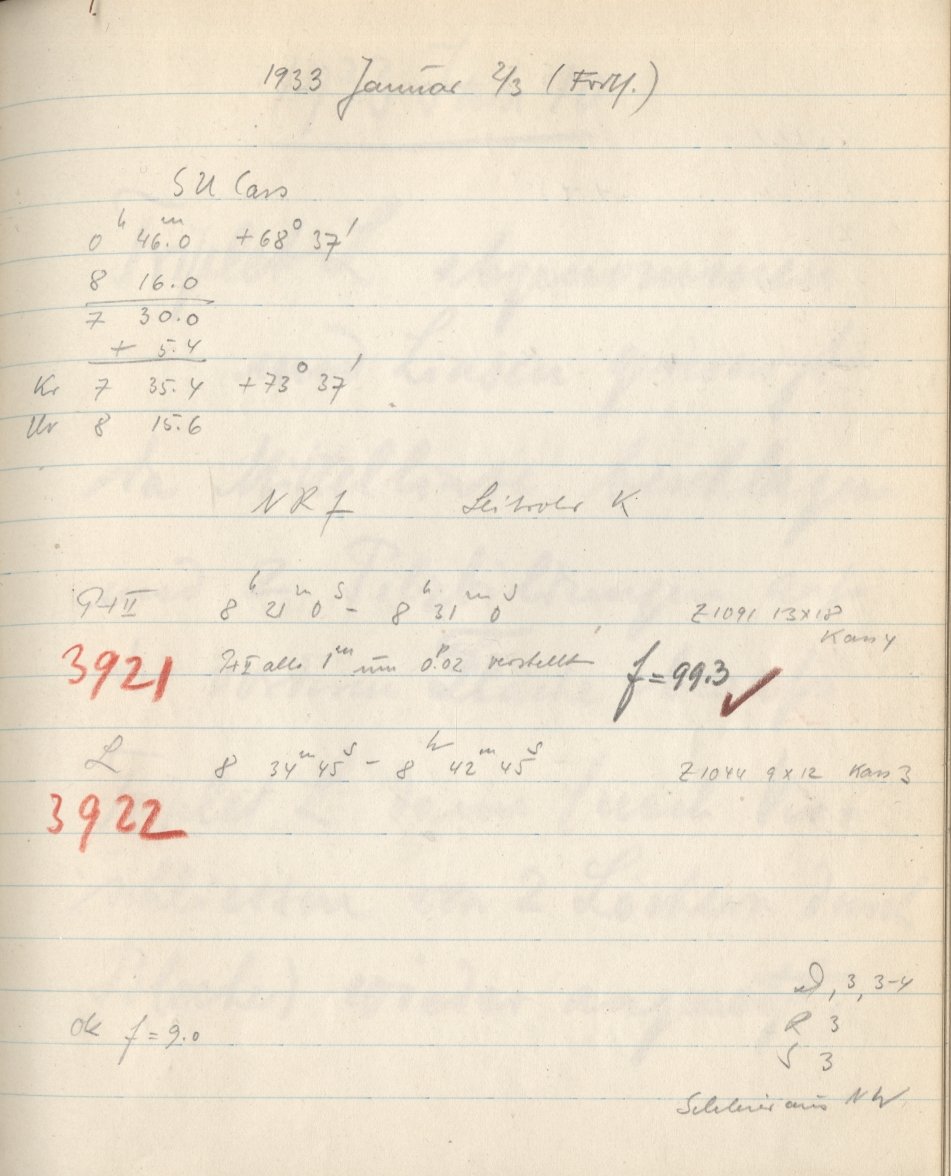 1933 Januar 2/3 (Forts.)
SU Cass
0ʰ 46.0ᵐ +68° 37'
8 16.0
7 30.0
+ 5.4
Kr 7 35.4 +73° 37'
Ur 8 15.6
NRf Leitrohr K
P+II 8ʰ 21ᵐ 0ˢ - 8ʰ 31ᵐ 0ˢ Z1091 13x18
Kass 4
3921 P+II alle 1ᵐ um 0.02 verstellt f=99.3 ✓
L 8 34ᵐ 45ˢ - 8ʰ 42ᵐ 45ˢ Z1044 9x12 Kass 3
3922
D, 3, 3-4
ok f=9.0 R 3
S 3
Schleier aus NW